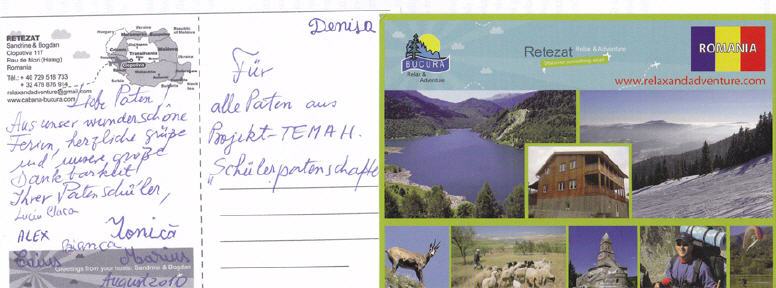 Denisa
RETEZAT
Sandrine & Bogdan
Clopotiva 117
Rau de Mori (Hateg)
Romania
Tél.: + 40 729 518 733
+ 32 478 876 914
relaxandadventure@gmail.com
www.cabana-bucura.com
Hungary
Ukraine
Republic of Moldova
Maramures
Bucovina
Crisana
Transilvania
Moldova
Banat
Clopotiva
Serbia
Bulgaria
Black Sea
Liebe Paten,
Aus unser wunderschöne
Ferien, herzliche grüße
und unsere große
Dankbarkeit!
Ihrer Patenschüler,
Luciu Clara
ALEX Ionică
Bianca
Marius
Greetings from your hosts: Sandrine & Bogdan
August 2010
Für
alle Paten aus
Projekt-TEMA H.
"Schülerpatenschafte
BUCURA
Relax &
Adventure
Retezat Relax & Adventure
Discover something else!
ROMANIA
www.relaxandadventure.com